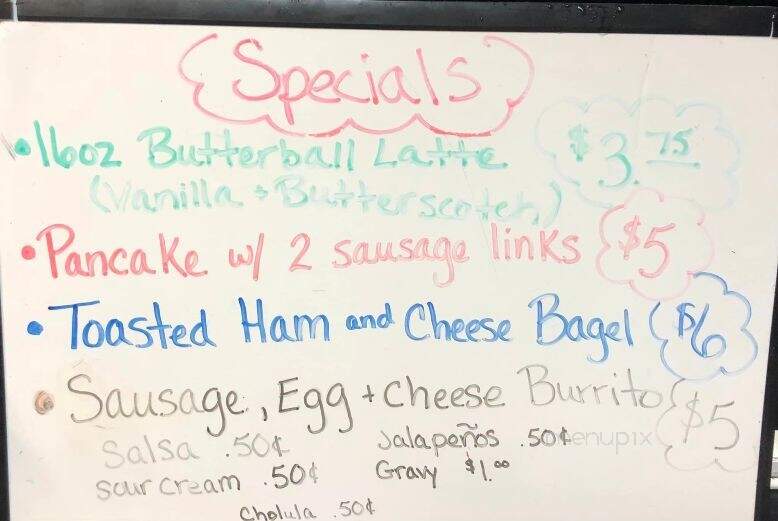 Specials
• 16oz Butterball Latte $3.75
(Vanilla + Butterscotch)
• Pancake w/ 2 sausage links $5
• Toasted Ham and Cheese Bagel $6
• Sausage, Egg + Cheese Burrito $5
Salsa .50¢ Jalapeños .50¢ menupix
sour cream .50¢ Gravy $1.00
Cholula .50¢